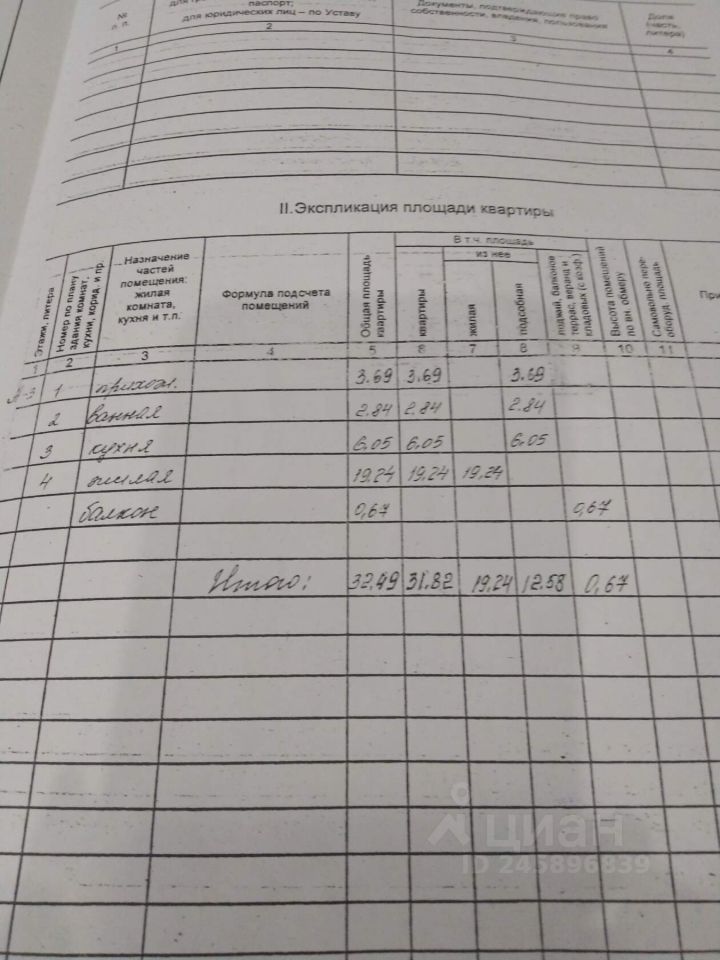 №
п. п.
паспорт;
для юридических лиц – по Уставу
Документы, подтверждающие право
собственности, владения, пользования
Доля
(часть,
литера)
1 2 3 4
II. Экспликация площади квартиры
Этажи, литера
Номер по плану
здания комнат,
кухни, корид. и пр.
Назначение
частей
помещения:
жилая
комната,
кухня и т.п.
Формула подсчета
помещений
Общая площадь
квартиры
В т.ч. площадь
квартиры
из нее
жилая
подсобная
лоджий, балконов
террас, веранд и
кладовых (с коэф.)
Высота помещений
по вн. обмеру
Самовольно пере-
оборуд. площадь
При
1 2 3 4 5 6 7 8 9 10 11
1 прихож. 3.69 3.69 3.69
2 ванная 2.84 2.84 2.84
3 кухня 6.05 6.05 6.05
4 жилая 19,24 19,24 19,24
балкон 0,67 0,67
Итого: 32.49 31.82 19,24 12.58 0,67
циан
ID 245896839